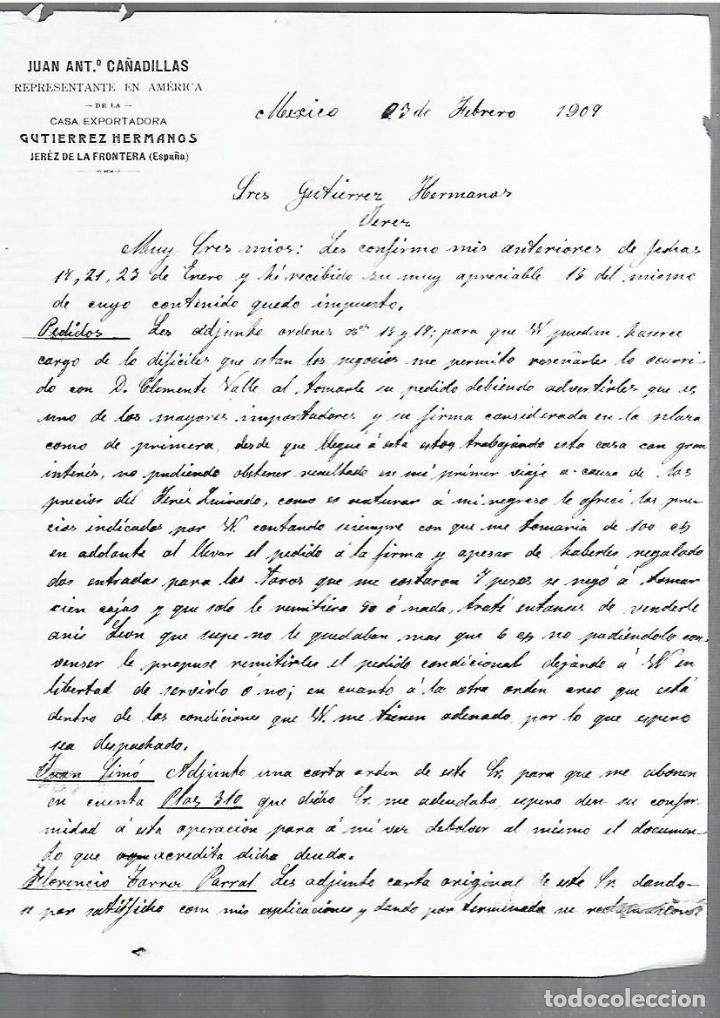 JUAN ANT.º CAÑADILLAS
REPRESENTANTE EN AMÉRICA
— DE LA —
CASA EXPORTADORA
GUTIERREZ HERMANOS
JERÉZ DE LA FRONTERA (España)
Mexico 03 de Febrero 1909
Sres Gutierrez Hermanos
Jerez
Muy Sres mios: Les confirmo mis anteriores de fechas
18, 21, 23 de Enero y hé recibido su muy apreciable 15 del mismo
de cuyo contenido quedo impuesto.
Pedidos Les adjunto ordenes nos 18 y 19; para que W puedan hacerce
cargo de lo dificiles que estan los negocios me permito reseñarles lo ocurri
do con D. Clemente Valle al tomarle su pedido debiendo advertirles que es
uno de los mayores importadores y su firma considerada en la plaza
como de primera, desde que llegue á esta estoy trabajando esta casa con gran
interés, no pudiendo obtener resultado en mi primer viaje a causa de los
precios del Jerés Quinado, como es naturar á mi regreso le ofreci los pre
cios indicados por W. contando siempre con que me tomaria de 100 c/s
en adelante al llevar el pedido á la firma y apesar de haberles regalado
dos entrada para los Toros que me costaron 7 pesos se negó á tomar
cien cajas y que solo le remitiera 50 ó nada, traté entonses de venderle
anis Leon que supe no le quedaban mas que 6 c/s no pudiendolo con
venser le propuse remitirles el pedido condicional dejando á W en
libertad de servirlo ó no; en cuanto á la otra orden creo que está
dentro de las condiciones que W. me tienen ordenado, por lo que espero
sea despachado.
Juan Simó Adjunto una carta orden de este Sr. para que me abonen
en cuenta Ptas 310 que dicho Sr. me adeudaba, espero den su confor
midad á esta operacion para á mi vez debolver al mismo el documen
to que acredita dicha deuda.
Florencio Torres Parral Les adjunto carta original de este Sr. dando-
se por satisficho com mis esplicaciones y dando por terminada su
todocoleccion